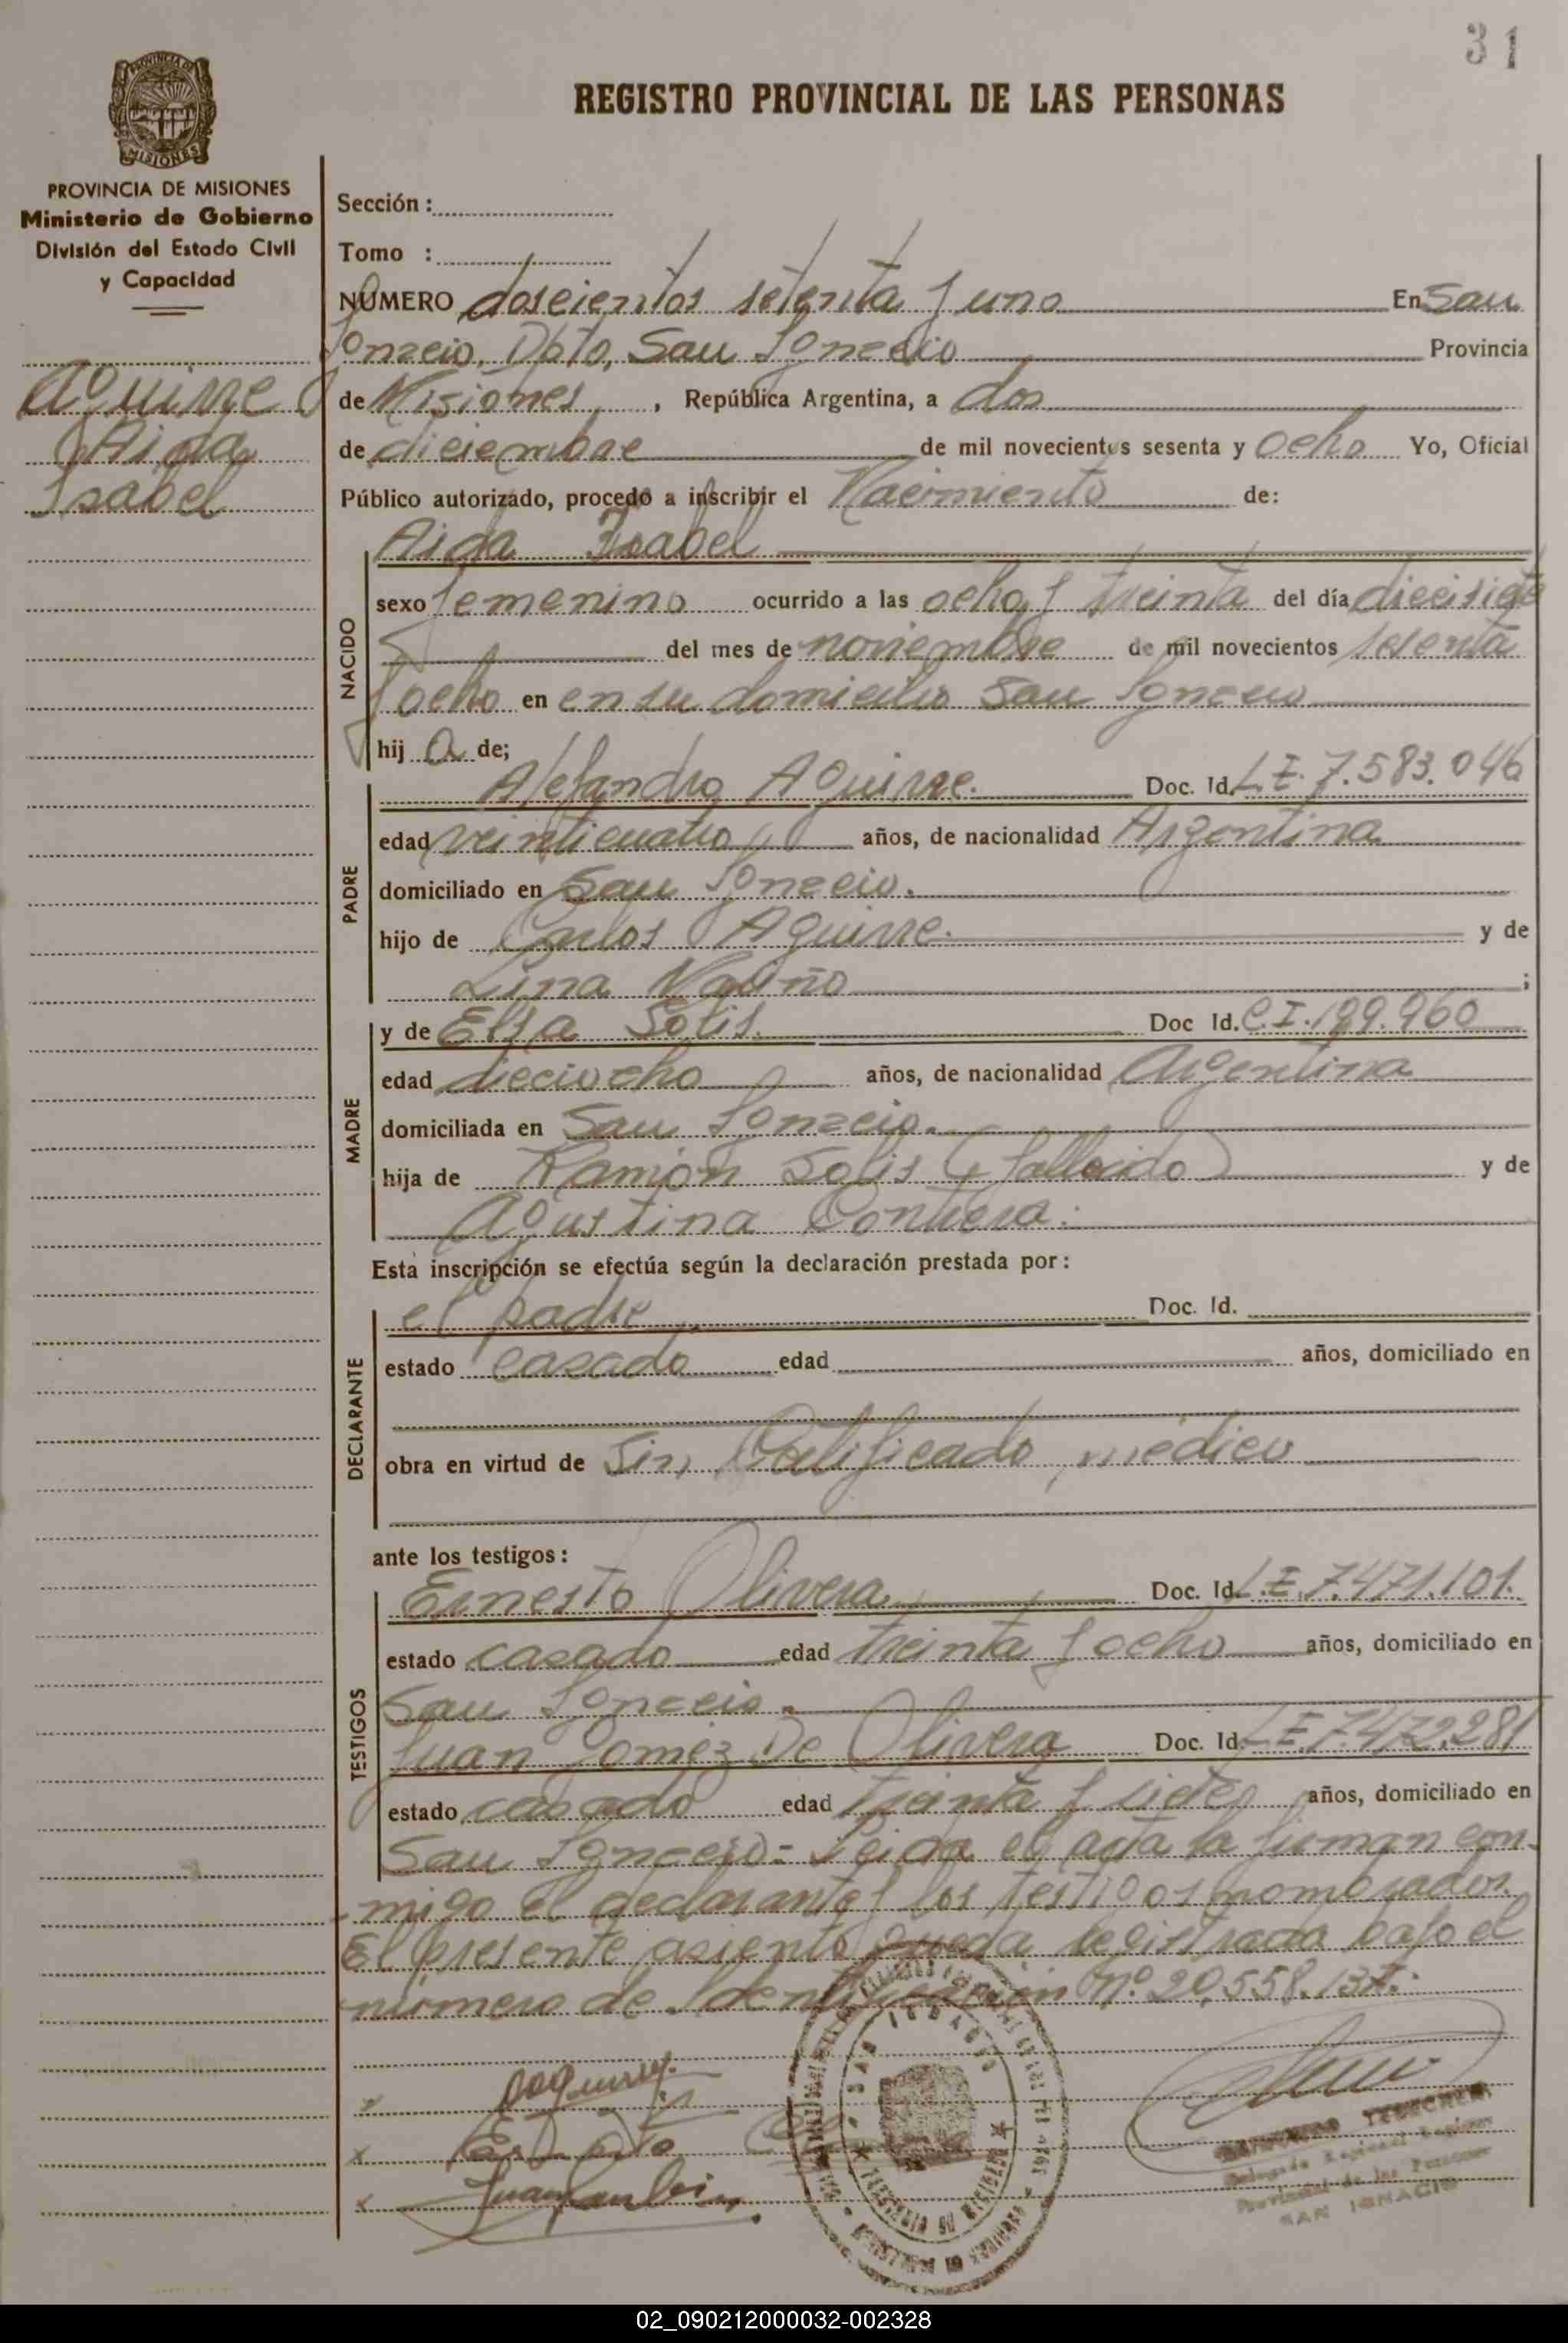 31
REGISTRO PROVINCIAL DE LAS PERSONAS
PROVINCIA DE
MISIONES
PROVINCIA DE MISIONES
Ministerio de Gobierno
División del Estado Civil
y Capacidad
Aguirre
Aida
Isabel
Sección :
Tomo :
NÚMERO doscientos setenta y uno En San
Ignacio, Dpto, San Ignacio Provincia
de Misiones, República Argentina, a dos
de diciembre de mil novecientos sesenta y ocho Yo, Oficial
Público autorizado, procedo a inscribir el Nacimiento de:
Aida Isabel
NACIDO
sexo femenino ocurrido a las ocho y treinta del día diecisiete
del mes de noviembre de mil novecientos sesenta
y ocho en en su domicilio San Ignacio
hij a de;
PADRE
Alejandro Aguirre. Doc. Id. L.E. 7.583.046
edad veinticuatro años, de nacionalidad Argentina
domiciliado en San Ignacio.
hijo de Carlos Aguirre. y de
Lina ;
MADRE
y de Elsa Solis. Doc Id. C.I. 199.960
edad dieciocho años, de nacionalidad Argentina
domiciliada en San Ignacio.
hija de Ramón Solis (fallecido) y de
Agustina Contrera.
Esta inscripción se efectúa según la declaración prestada por :
DECLARANTE
el padre Doc. Id.
estado casado edad años, domiciliado en
obra en virtud de Sin Calificado médico
ante los testigos :
TESTIGOS
Ernesto Olivera Doc. Id. L.E. 7.471.101.
estado casado edad treinta y ocho años, domiciliado en
San Ignacio.
Juan Gomez De Olivera Doc. Id. L.E. 7.472.281
estado casado edad treinta y siete años, domiciliado en
San Ignacio= Leida el acta la firman con-
migo el declarante y los testigos nombrados.
El presente asiento queda registrado bajo el
número de Identificación Nº. 20.558.137.
SAN IGNACIO
Delegado Regional Registro
Provincial de las Personas
SAN IGNACIO
02_090212000032-002328